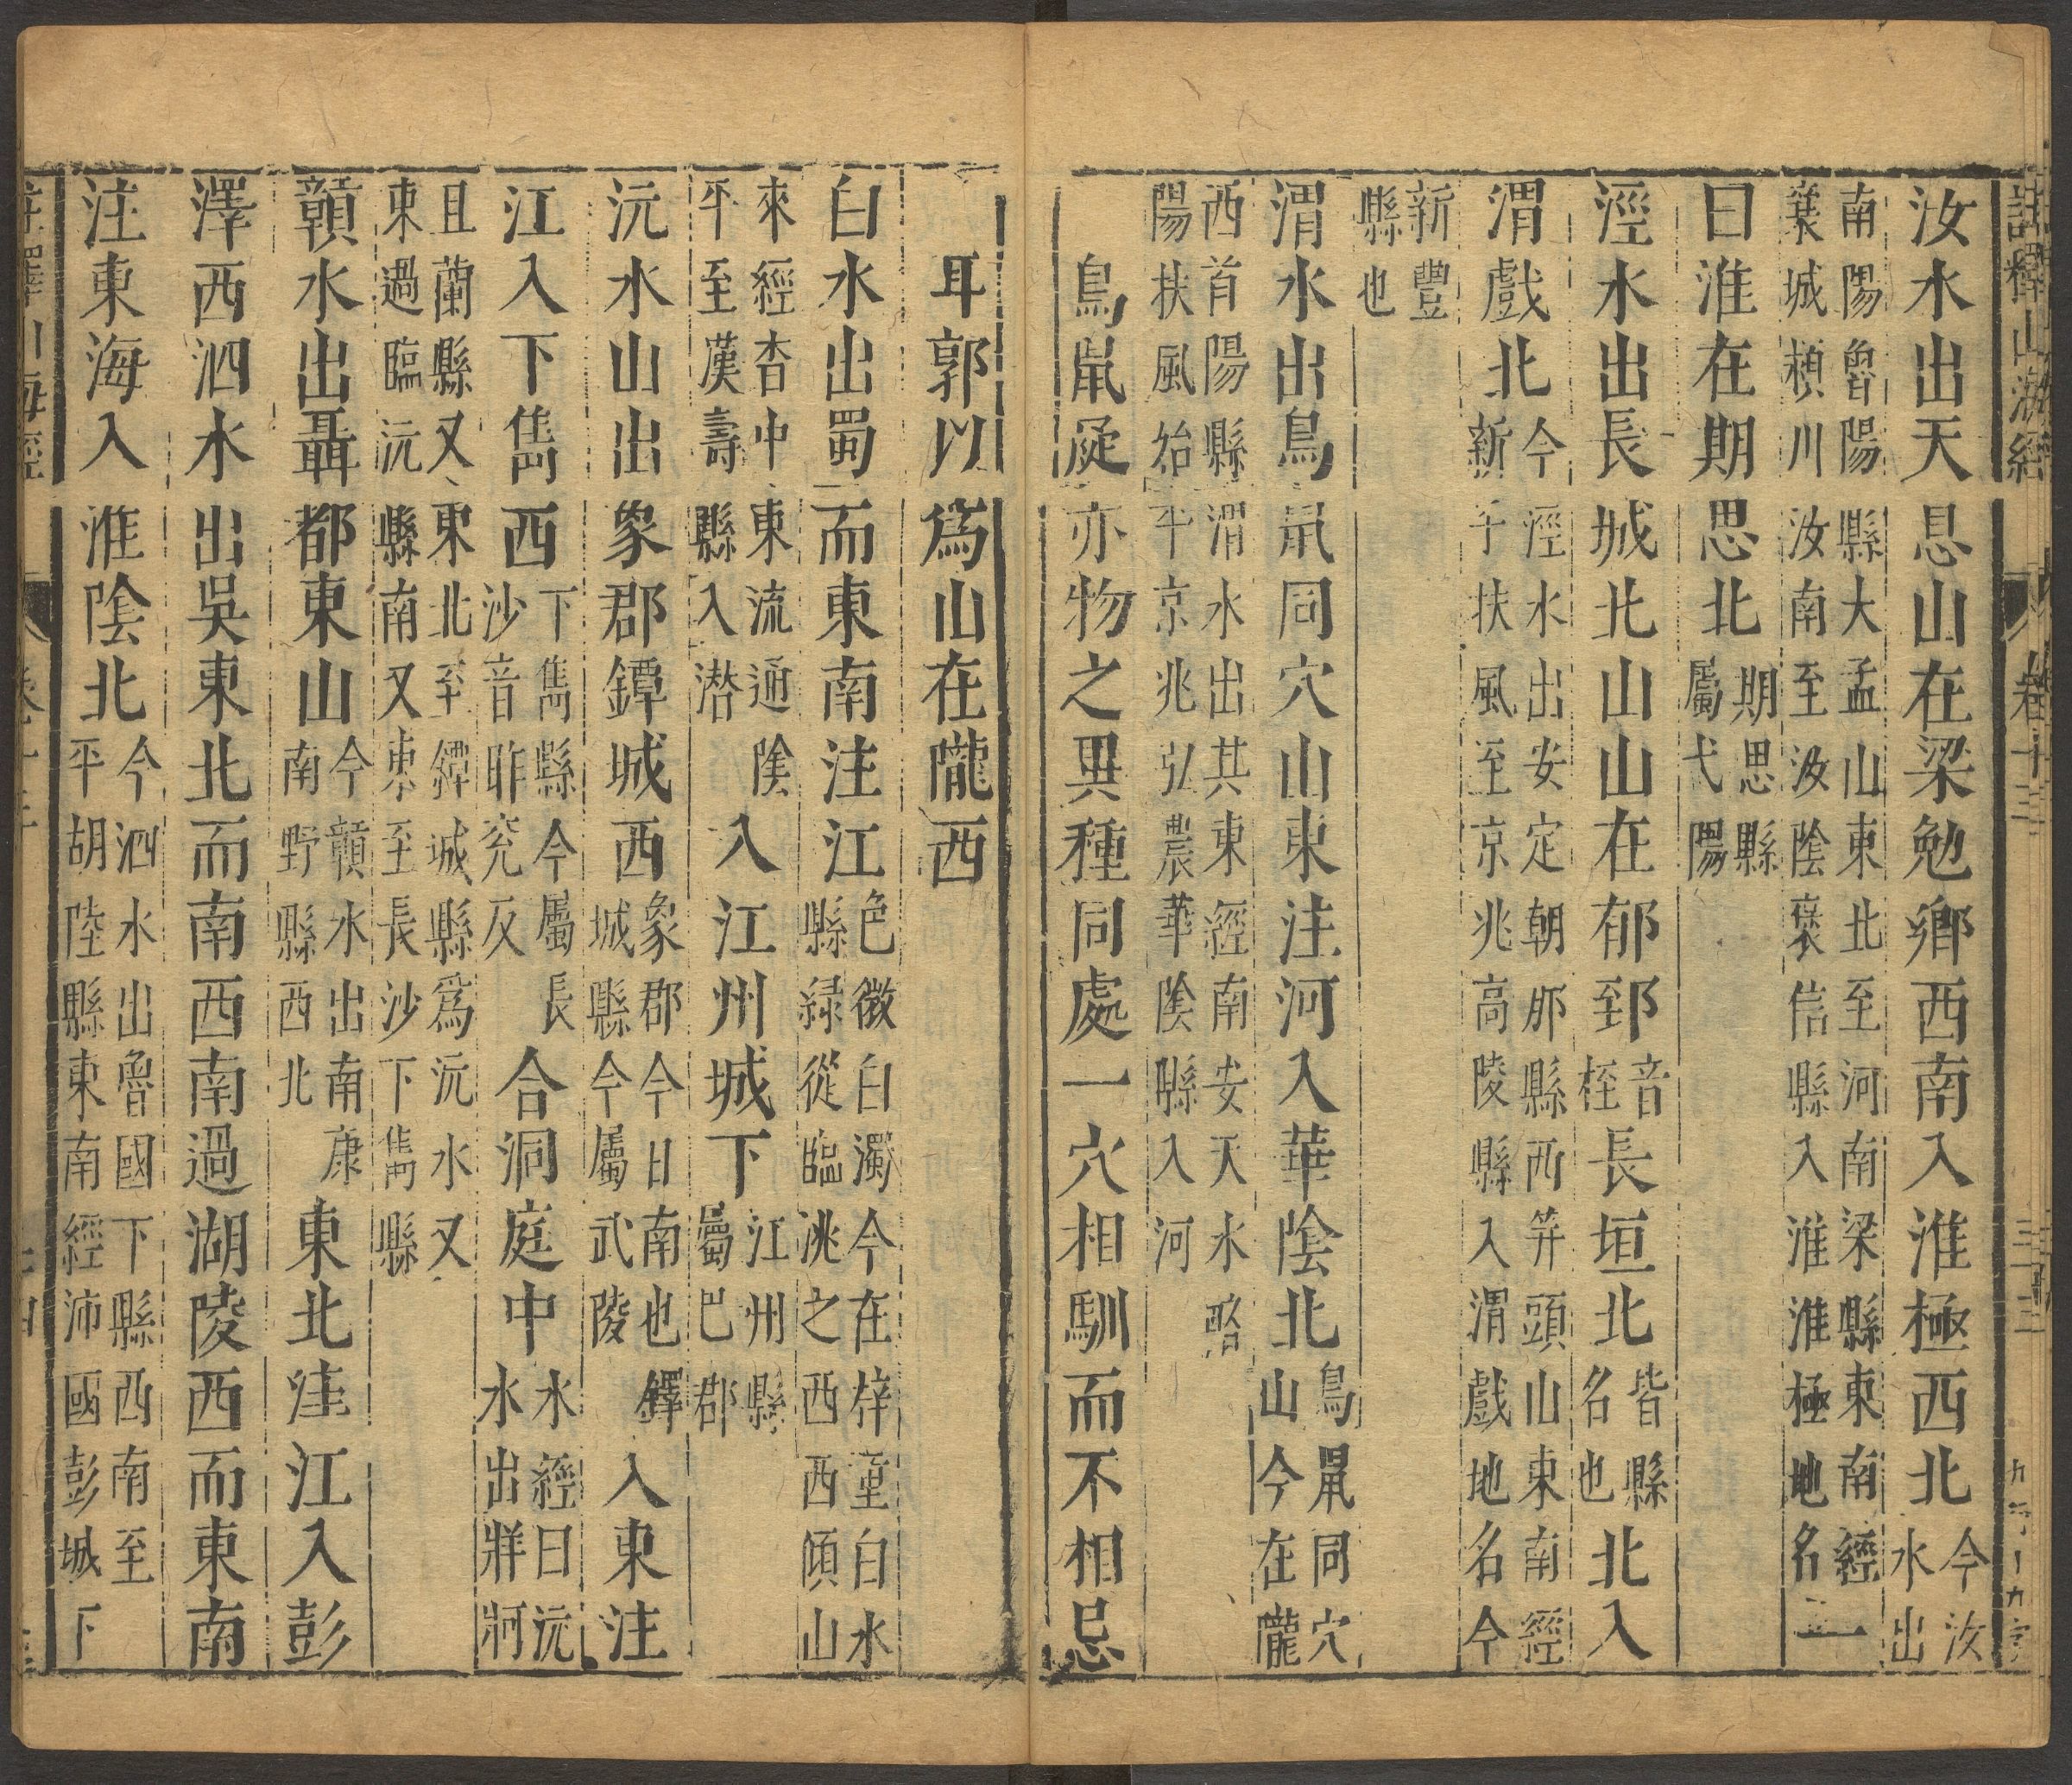 汝水出天息山在梁勉鄉西南入淮極西北今汝水出
南陽魯陽縣大孟山東北至河南梁縣東南經
葉城頴川汝南至汝陰襃信縣入淮淮極地名一
曰淮在期思北期思縣屬弋陽
涇水出長城北山山在郁郅音桎長垣北皆縣名也北入
渭戲北今涇水出安定朝那縣西笄頭山東南經
新平扶風至京兆高陵縣入渭戲地名今
新豐縣也
渭水出鳥鼠同穴山東注河入華陰北鳥鼠同穴山今在隴
西首陽縣渭水出其東經南安天水略
陽扶風始平京兆弘農華陰縣入河
鳥鼠㢑亦物之異種同處一穴相馴而不相忌
耳郭以爲山在隴西
白水出蜀而東南注江色微白濁今在梓童白水縣緑從臨洮之西西傾山
來經杳中東流通陰平至漢壽縣入潜入江州城下江州縣屬巴郡
沅水山出象郡鐔城西象郡今日南也鐸城縣今屬武陵入東注
江入下雋西下雋縣今屬長沙音昨兖反合洞庭中水經曰沅水出牂牁
且蘭縣又東北至鐔城縣爲沅水又
東過臨沅縣南又東至長沙下雋縣
贑水出聶都東山今贑水出南康南野縣西北東北注江入彭
澤西泗水出吳東北而南西南過湖陵西而東南
注東海入淮陰北今泗水出魯國下縣西南至平胡陸縣東南經沛國彭城下